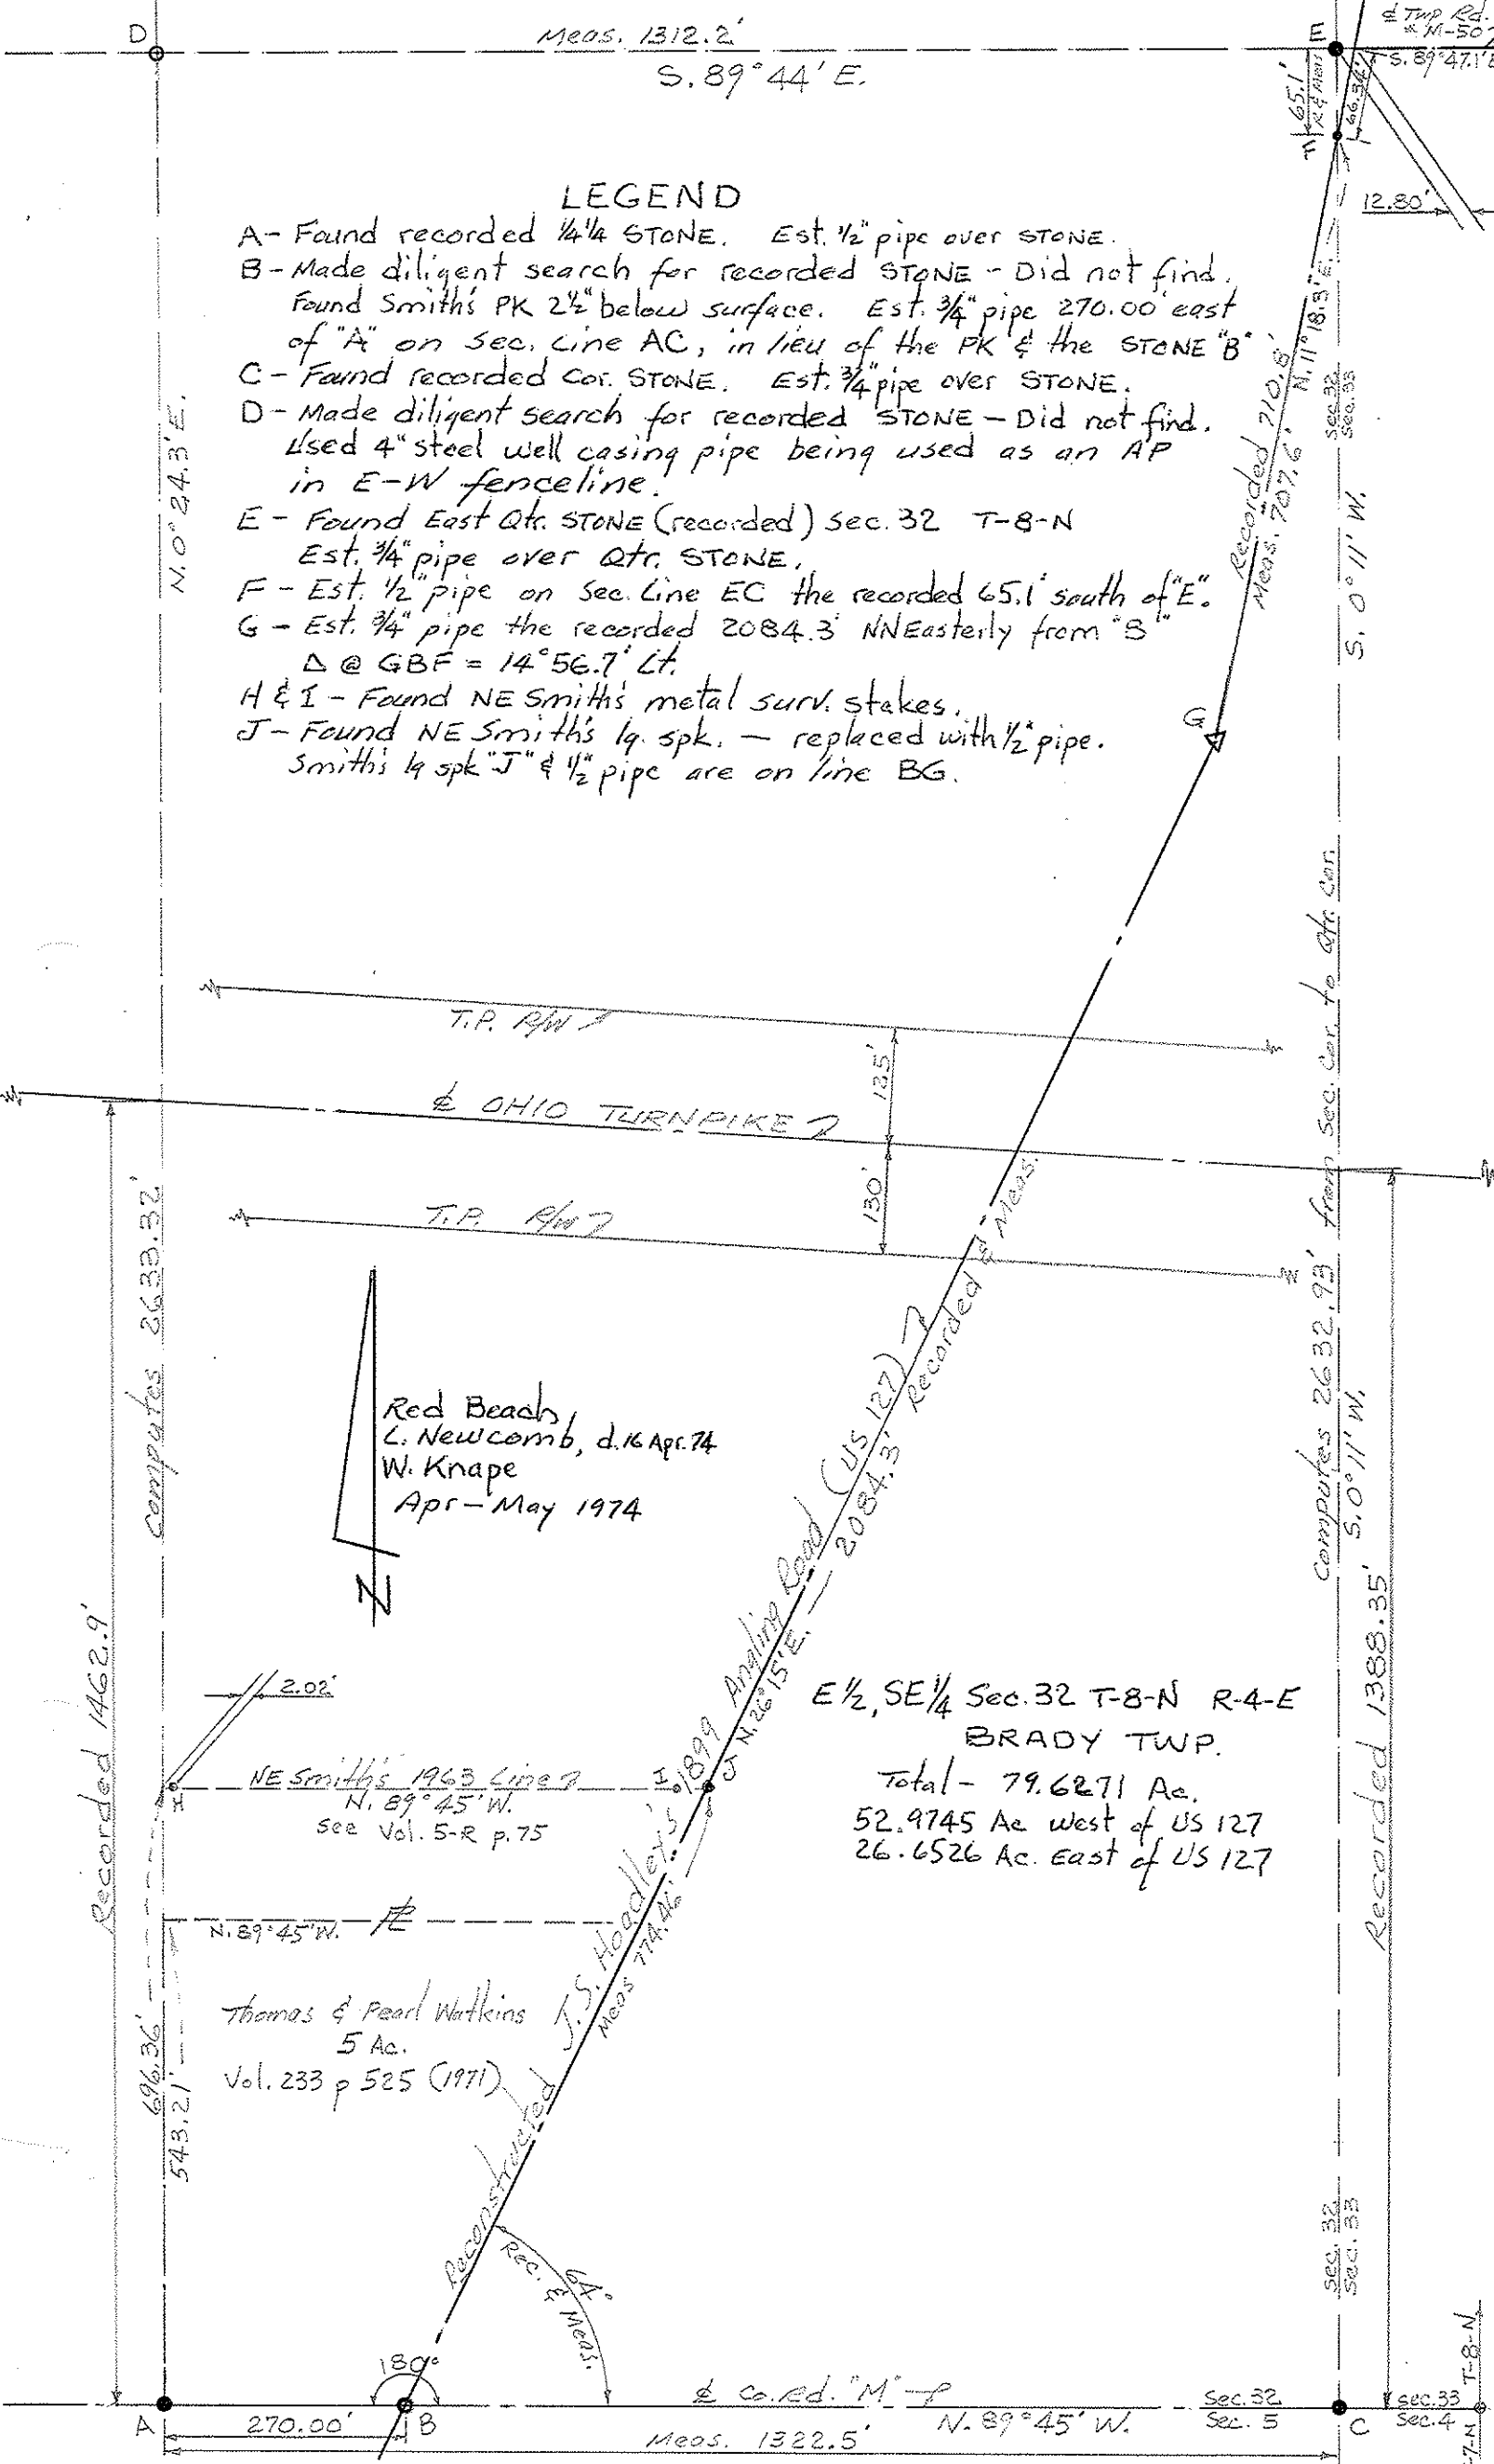 D
Meas. 1312.2'
S. 89°44' E.
E
℄ Twp Rd.
M-50
S. 89°47.1' E
65.1'
R & Meas
66.34'
F
12.80'
LEGEND
A- Found recorded 1/4 1/4 STONE. Est. 1/2" pipe over STONE.
B- Made diligent search for recorded STONE - Did not find.
Found Smith's PK 2 1/2" below surface. Est. 3/4" pipe 270.00' east
of "A" on Sec. Line AC, in lieu of the PK & the STONE "B"
C- Found recorded Cor. STONE. Est. 3/4" pipe over STONE.
D- Made diligent search for recorded STONE - Did not find.
Used 4" steel well casing pipe being used as an AP
in E-W fenceline.
E - Found East Qtr. STONE (recorded) Sec. 32 T-8-N
Est. 3/4" pipe over Qtr. STONE.
F - Est. 1/2" pipe on Sec. Line EC the recorded 65.1' south of "E".
G - Est. 3/4" pipe the recorded 2084.3' NNEasterly from "B"
Δ @ GBF = 14°56.7' Lt.
H & I - Found NE Smith's metal surv. stakes.
J - Found NE Smith's lg. spk. — replaced with 1/2" pipe.
Smith's lg spk "J" & 1/2" pipe are on line BG.
N. 0°24.3' E.
Recorded 710.8'
Meas. 707.6'
N. 11°18.3' E.
Sec. 32
Sec. 33
S. 0°11' W.
G
T.P. R/W
125'
℄ OHIO TURNPIKE
130'
T.P. R/W
Computes 2633.32'
Computes 2632.93' from Sec. Cor. to Qtr. Cor.
S. 0°11' W.
Recorded 1462.9'
Recorded 1388.35'
Red Beach,
C. Newcomb, d. 16 Apr. 74
W. Knape
Apr - May 1974
N
Reconstructed J.S. Hoadley's 1899 Angling Road (US 127)
N. 26°15' E. — 2084.3' Recorded & Meas.
2.02'
H
NE Smith's 1963 Line
I
J
N. 89°45' W.
see Vol. 5-R p. 75
E 1/2, SE 1/4 Sec. 32 T-8-N R-4-E
BRADY TWP.
Total - 79.6271 Ac.
52.9745 Ac West of US 127
26.6526 Ac. East of US 127
N. 89°45' W. ℄
Meas 774.46'
696.36'
543.21'
Thomas & Pearl Watkins
5 Ac.
Vol. 233 p 525 (1971)
64°
Rec. & Meas.
Sec. 32
Sec. 33
180°
A
270.00'
B
℄ Co. Rd. "M"
N. 89°45' W.
Meas. 1322.5'
Sec. 32
Sec. 5
C
Sec. 33
Sec. 4
T-8-N
T-7-N